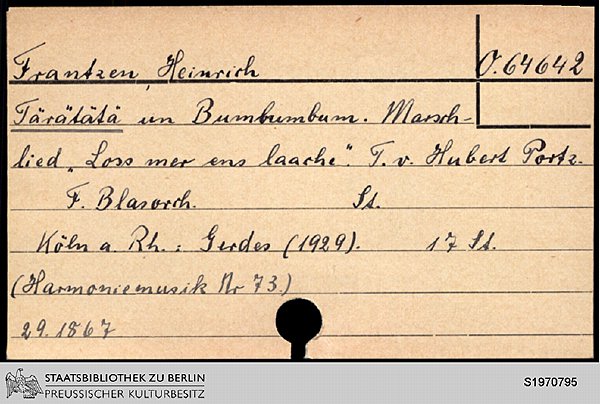 Frantzen, Heinrich
O. 64642
Tärätätä un Bumbumbum. Marsch-
lied „Loss mer ens laache“. T. v. Hubert Portz.
F. Blasorch. St.
Köln a. Rh.: Gerdes (1929). 17 St.
(Harmoniemusik Nr 73.)
29.1867
STAATSBIBLIOTHEK ZU BERLIN
PREUSSISCHER KULTURBESITZ
S1970795